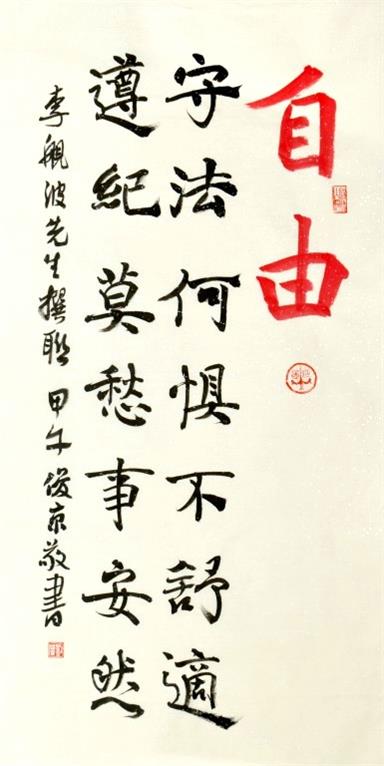 自由
守法何惧不舒適
遵紀莫愁事安然
李 波先生撰联 甲午俊京敬書